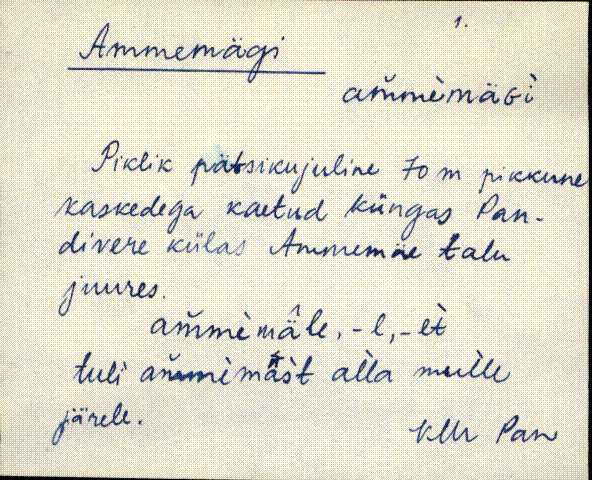 1.
Ammemägi
am̆mèmäGì
Piklik pätsikujuline 70 m pikkune
kaskedega kaetud küngas Pan-
divere külas Ammemäe talu
juures.
am̆mèmä̂le, -l, -èt
tuli am̆mèmäst alla mulle
järele.
KMr Pan